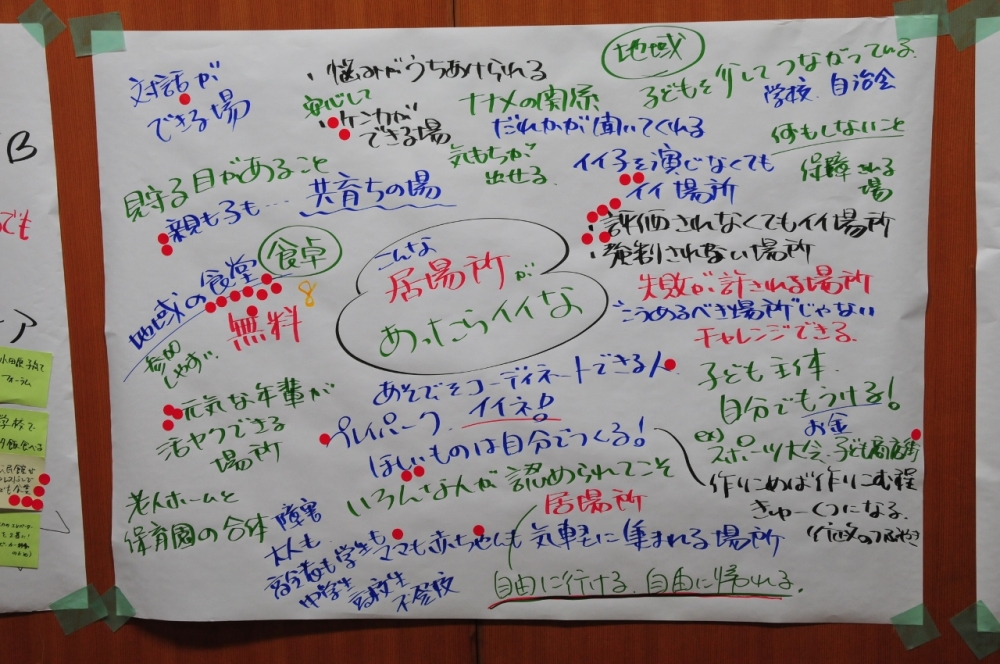 B
でも
ア
小田原子育て
フォーラム
学校で
対話が
できる場
・悩みがうちあけられる
安心して
・ケンカが
できる場
地域
ナナメの関係
子どもを介してつながっている。
学校、自治会
だれかが聞いてくれる
何もしないこと
保障される
場
見守る目があること
気もちが
出せる
イイ子を演じなくても
イイ場所
親も子も…共育ちの場
・評価されなくてもイイ場所
・強制されない場所
地域の食堂
食卓
8
無料
参加
しやすい
こんな
居場所が
あったらイイな
失敗が許される場所
"こうあるべき場所"じゃない
チャレンジできる。
元気な年輩が
活ヤクできる
場所
あそびをコーディネートできる人
プレイパーク イイネ!
ほしいものは自分でつくる!
子ども主体
自分でもうける!
お金
ex) スポーツ大会、子ども商店街
いろんな人が認められてこそ
居場所
作りこめば作りこむ程
きゅーくつになる。
老人ホームと
保育園の合体
障害
大人も
高齢者も学生もママも赤ちゃんも気軽に集まれる場所
中学生 高校生 不登校
自由に行ける。自由に帰れる。